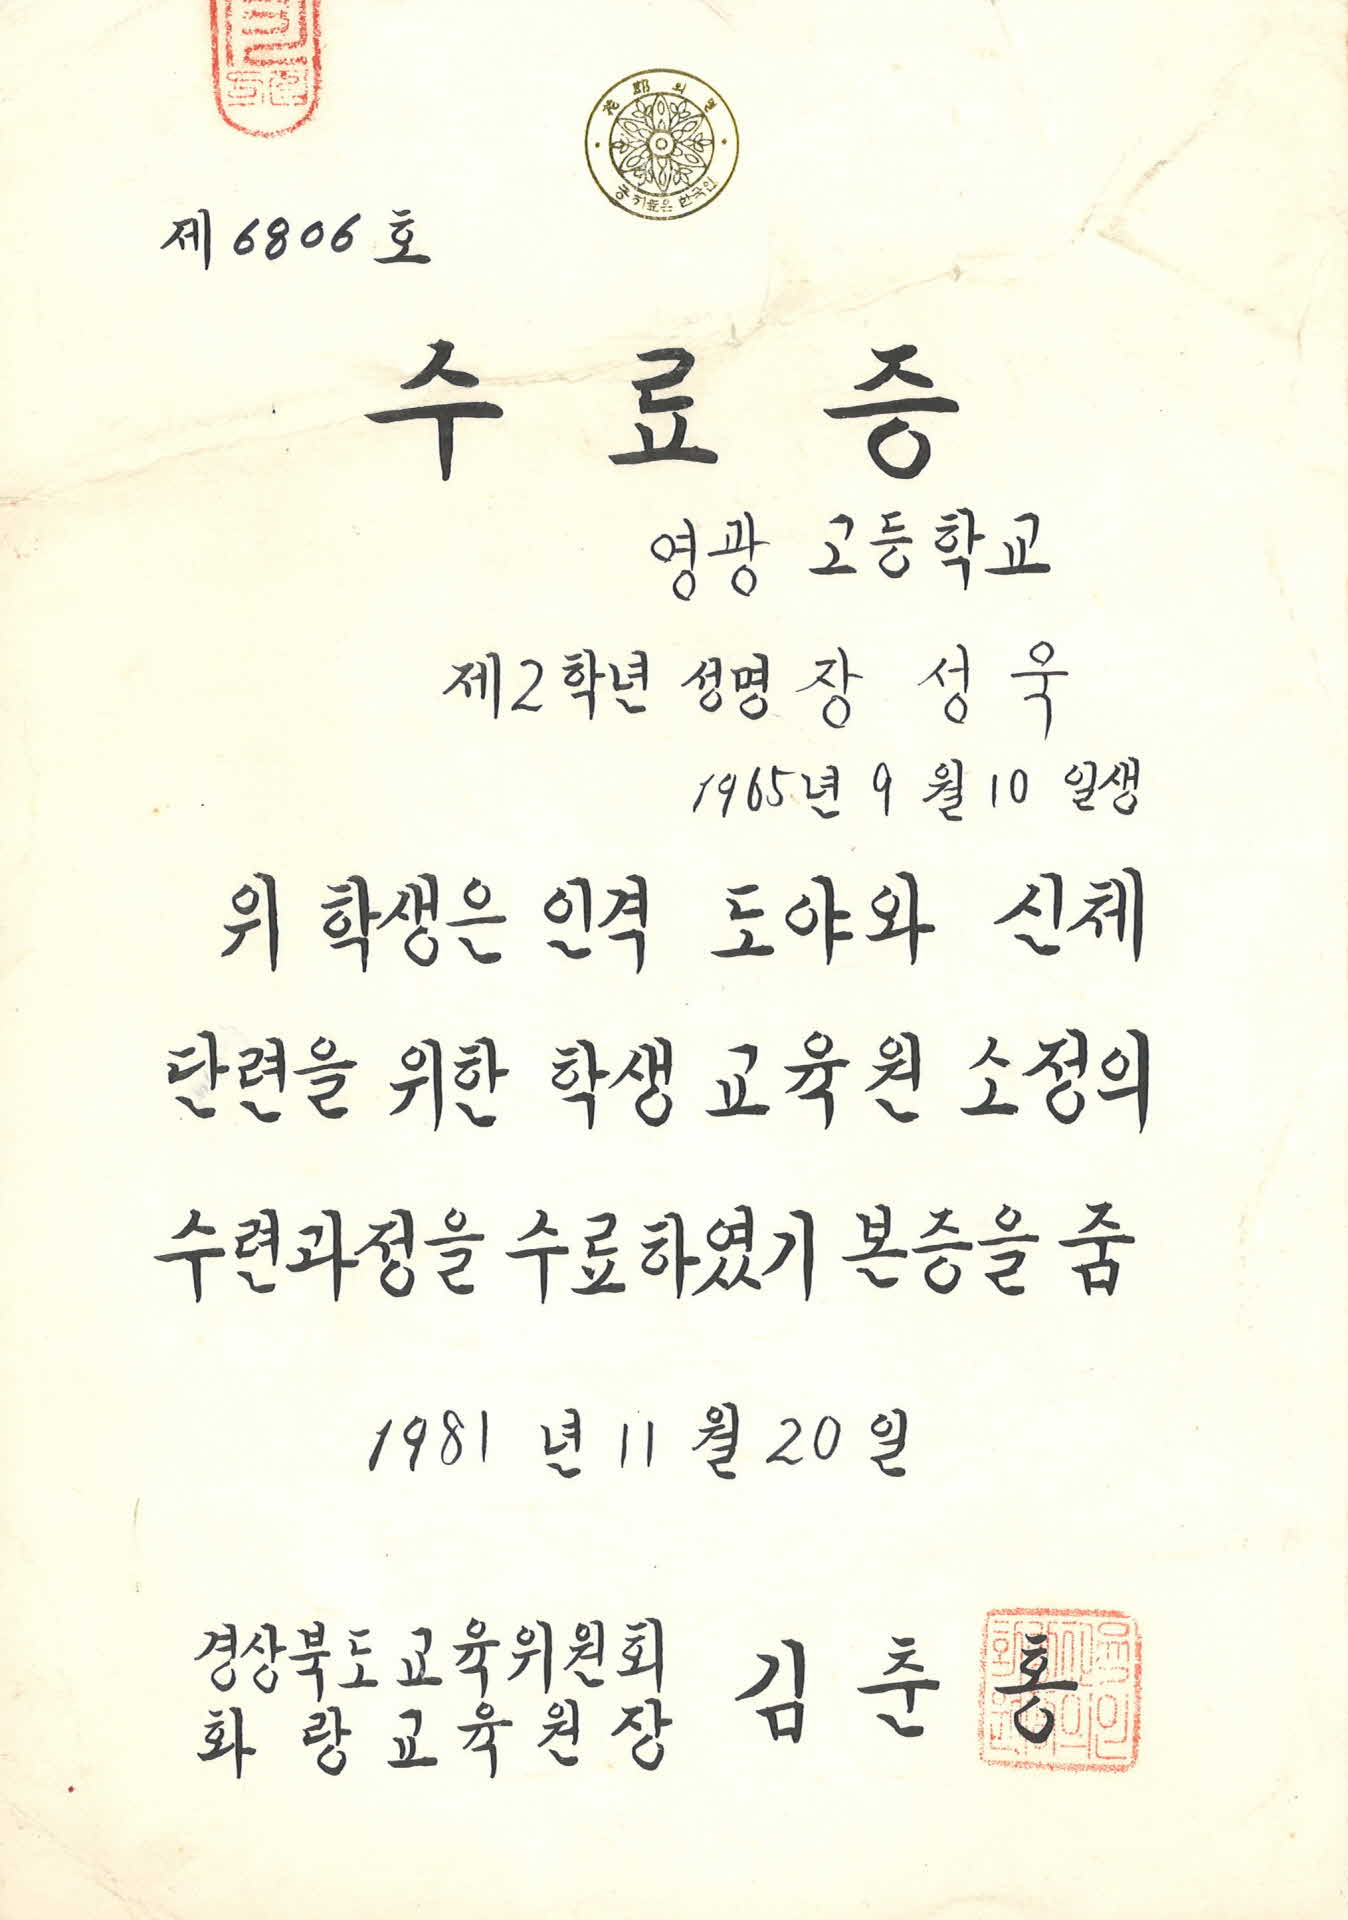 花郞의 얼
한국인
제 6806 호
수료증
영광 고등학교
제2학년 성명 장 성 욱
1965년 9월 10일생
위 학생은 인격 도야와 신체
단련을 위한 학생교육원 소정의
수련과정을 수료하였기 본증을 줌
1981년 11월 20일
경상북도교육위원회
화랑교육원장 김 춘 홍